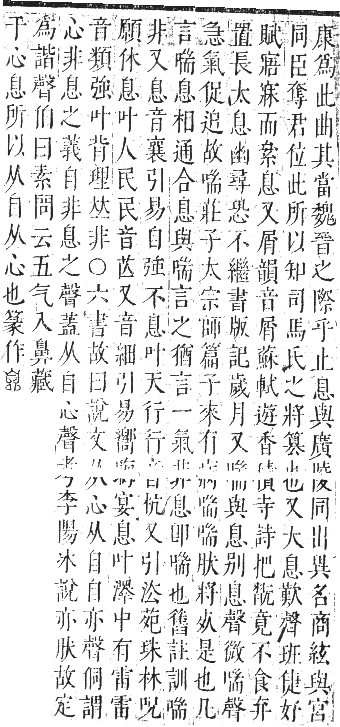 康爲此曲其當魏晉之際乎止息與廣陵同出異名商絃與宮
同臣奪君位此所以知司馬氏之將篡也又大息歎聲班倢妤
賦寤寐而絫息又屑韻音屑蘇軾遊香積寺詩把翫竟不食弃
置長太息幽尋恐不繼書版記歲月又喘與息別息聲微喘聲
急氣促追故喘莊子太宗師篇子來有病喘喘肰將死是也凡
言喘息相通合息與喘言之猶言一氣非息卽喘也舊註訓喘
非又息音襄引易自強不息叶天行行音杭又引法苑珠林呪
願休息叶人民民音茫又音細引易嚮晦宴息叶澤中有雷雷
音類強叶背理𠀤非○六書故曰說文从心从自自亦聲侗謂
心非息之義自非息之聲蓋从自心聲考李陽冰說亦肰故定
爲諧聲伯曰素問云五气入鼻藏
于心息所以从自从心也篆作